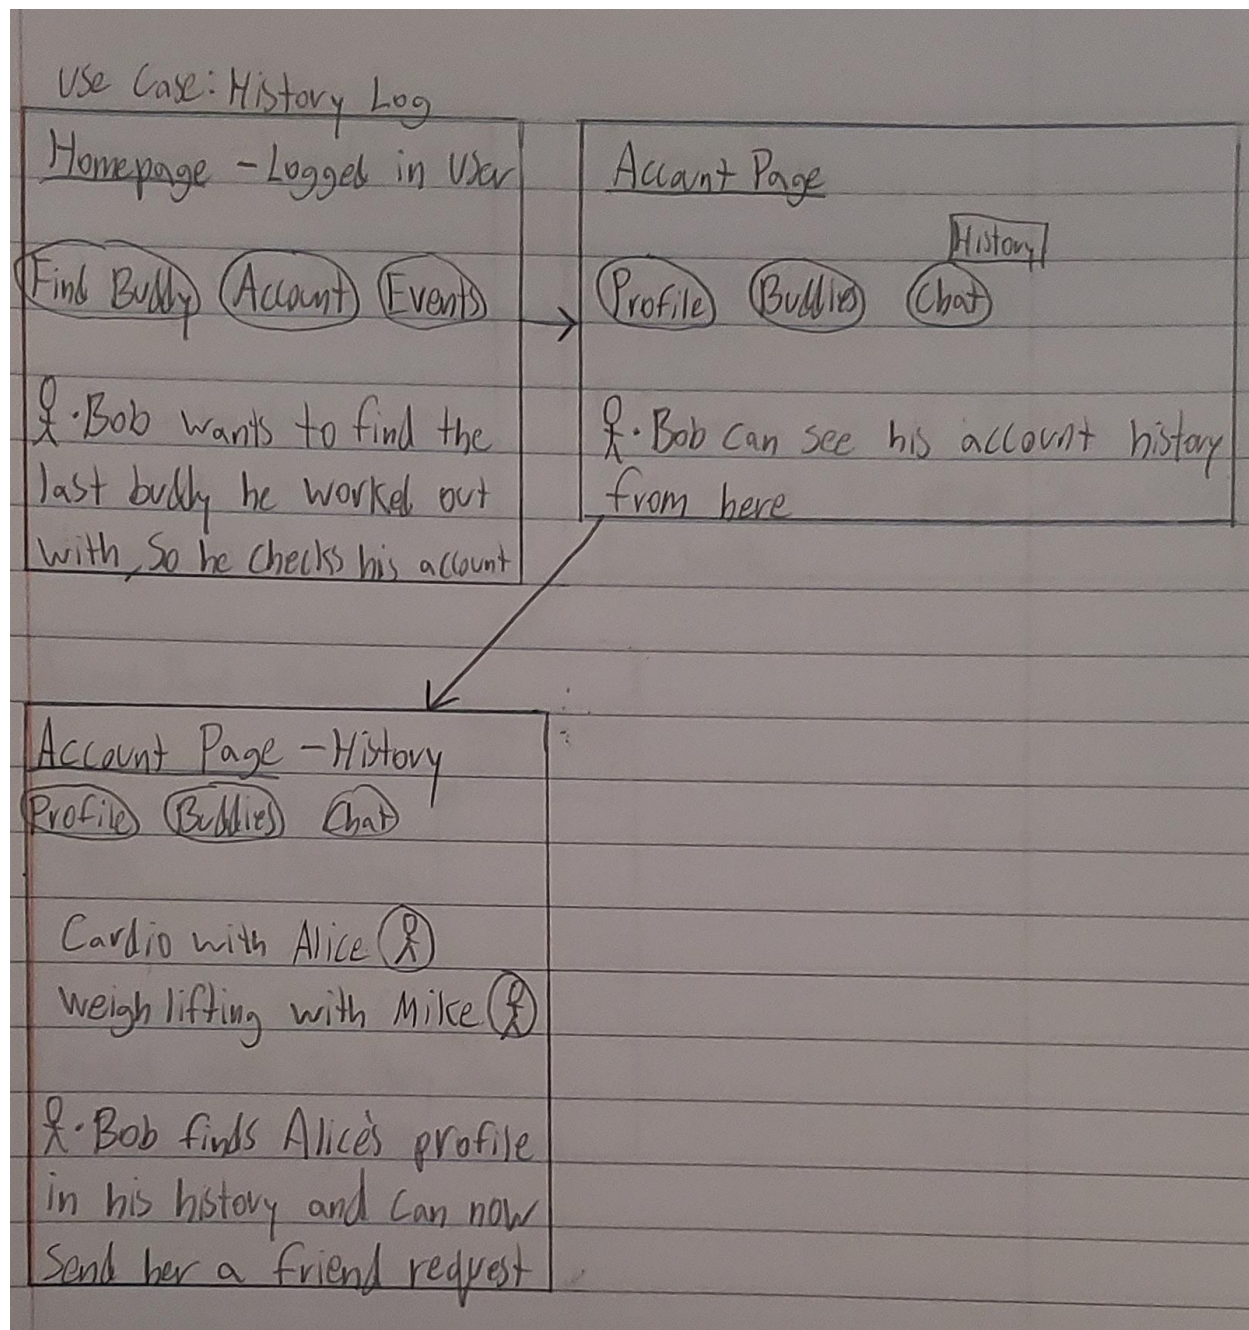 Use Case: History Log
Homepage - Logged in User
Find Buddy Account Events
Bob wants to find the
last buddy he worked out
with, So he checks his account
Account Page
History
Profile Buddies Chat
Bob can see his account history
from here
Account Page - History
Profile Buddies Chat
Cardio with Alice
Weigh lifting with Mike
Bob finds Alice's profile
in his history and can now
Send her a friend request